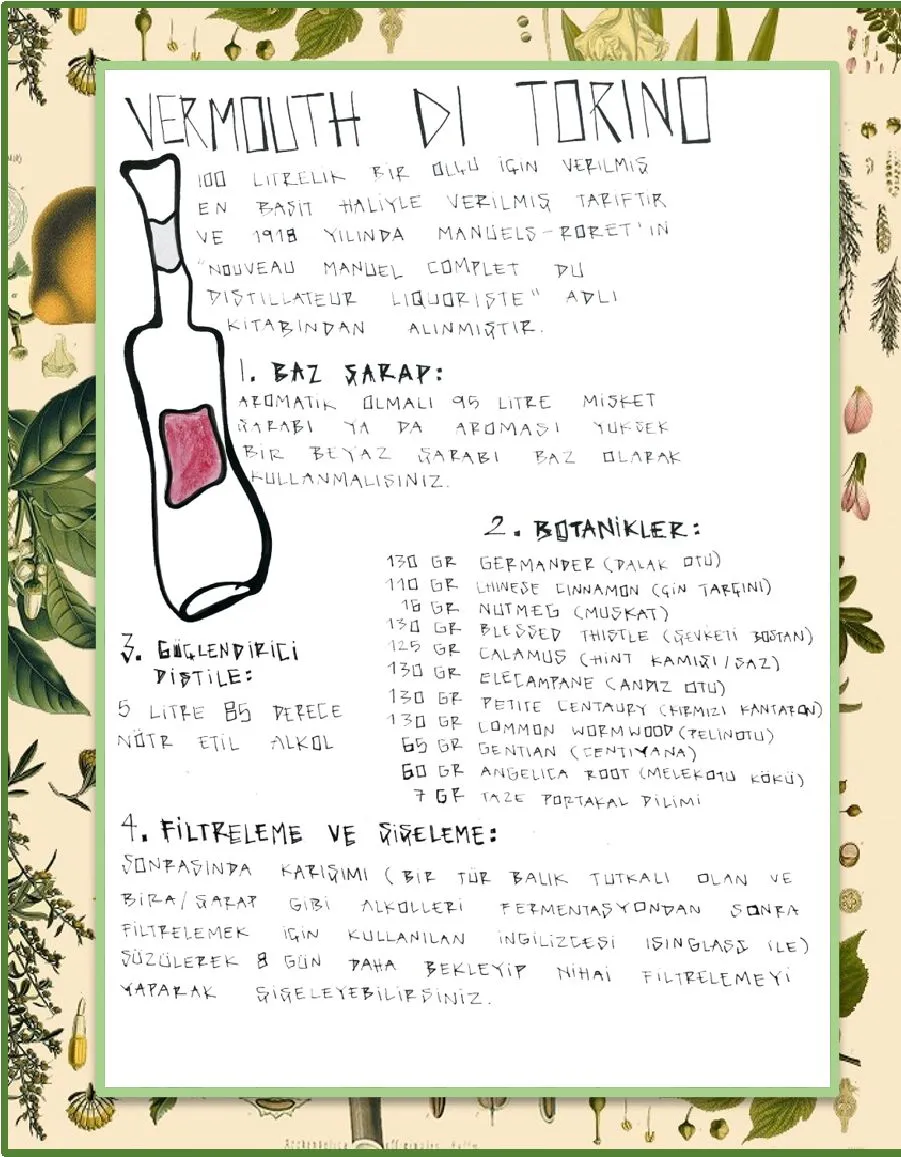 VERMOUTH DI TORINO
100 LITRELIK BIR OLÇU İÇİN VERILMIŞ
EN BASIT HALIYLE VERILMIŞ TARIFTIR
VE 1918 YILINDA MANUELS-RORET'IN
"NOUVEAU MANUEL COMPLET DU
DISTILLATEUR LIQUORISTE" ADLI
KITABINDAN ALINMIŞTIR.
1. BAZ ŞARAP:
AROMATIK OLMALI 95 LITRE MISKET
ŞARABI YA DA AROMASI YUKSEK
BIR BEYAZ ŞARABI BAZ OLARAK
KULLANMALISINIZ.
2. BOTANIKLER:
130 GR GERMANDER (DALAK OTU)
110 GR CHINESE CINNAMON (ÇIN TARÇINI)
15 GR NUTMEG (MUSKAT)
130 GR BLESSED THISTLE (ŞEVKETI BOSTAN)
125 GR CALAMUS (HINT KAMIŞI/SAZ)
130 GR ELECAMPANE (ANDIZ OTU)
130 GR PETITE CENTAURY (KIRMIZI KANTARON)
130 GR COMMON WORMWOOD (PELINOTU)
65 GR GENTIAN (CENTIYANA)
60 GR ANGELICA ROOT (MELEKOTU KÖKÜ)
7 GR TAZE PORTAKAL DILIMI
3. GÜÇLENDIRICI
DISTILE:
5 LITRE 85 DERECE
NÖTR ETIL ALKOL
4. FİLTRELEME VE ŞİŞELEME:
SONRASINDA KARIŞIMI (BIR TÜR BALIK TUTKALI OLAN VE
BIRA/ŞARAP GIBI ALKOLLERI FERMENTASYONDAN SONRA
FILTRELEMEK IÇIN KULLANILAN INGILIZCESI ISINGLASS ILE)
SÜZÜLEREK 8 GÜN DAHA BEKLEYIP NIHAI FILTRELEMEYI
YAPARAK ŞIŞELEYEBILIRSINIZ.